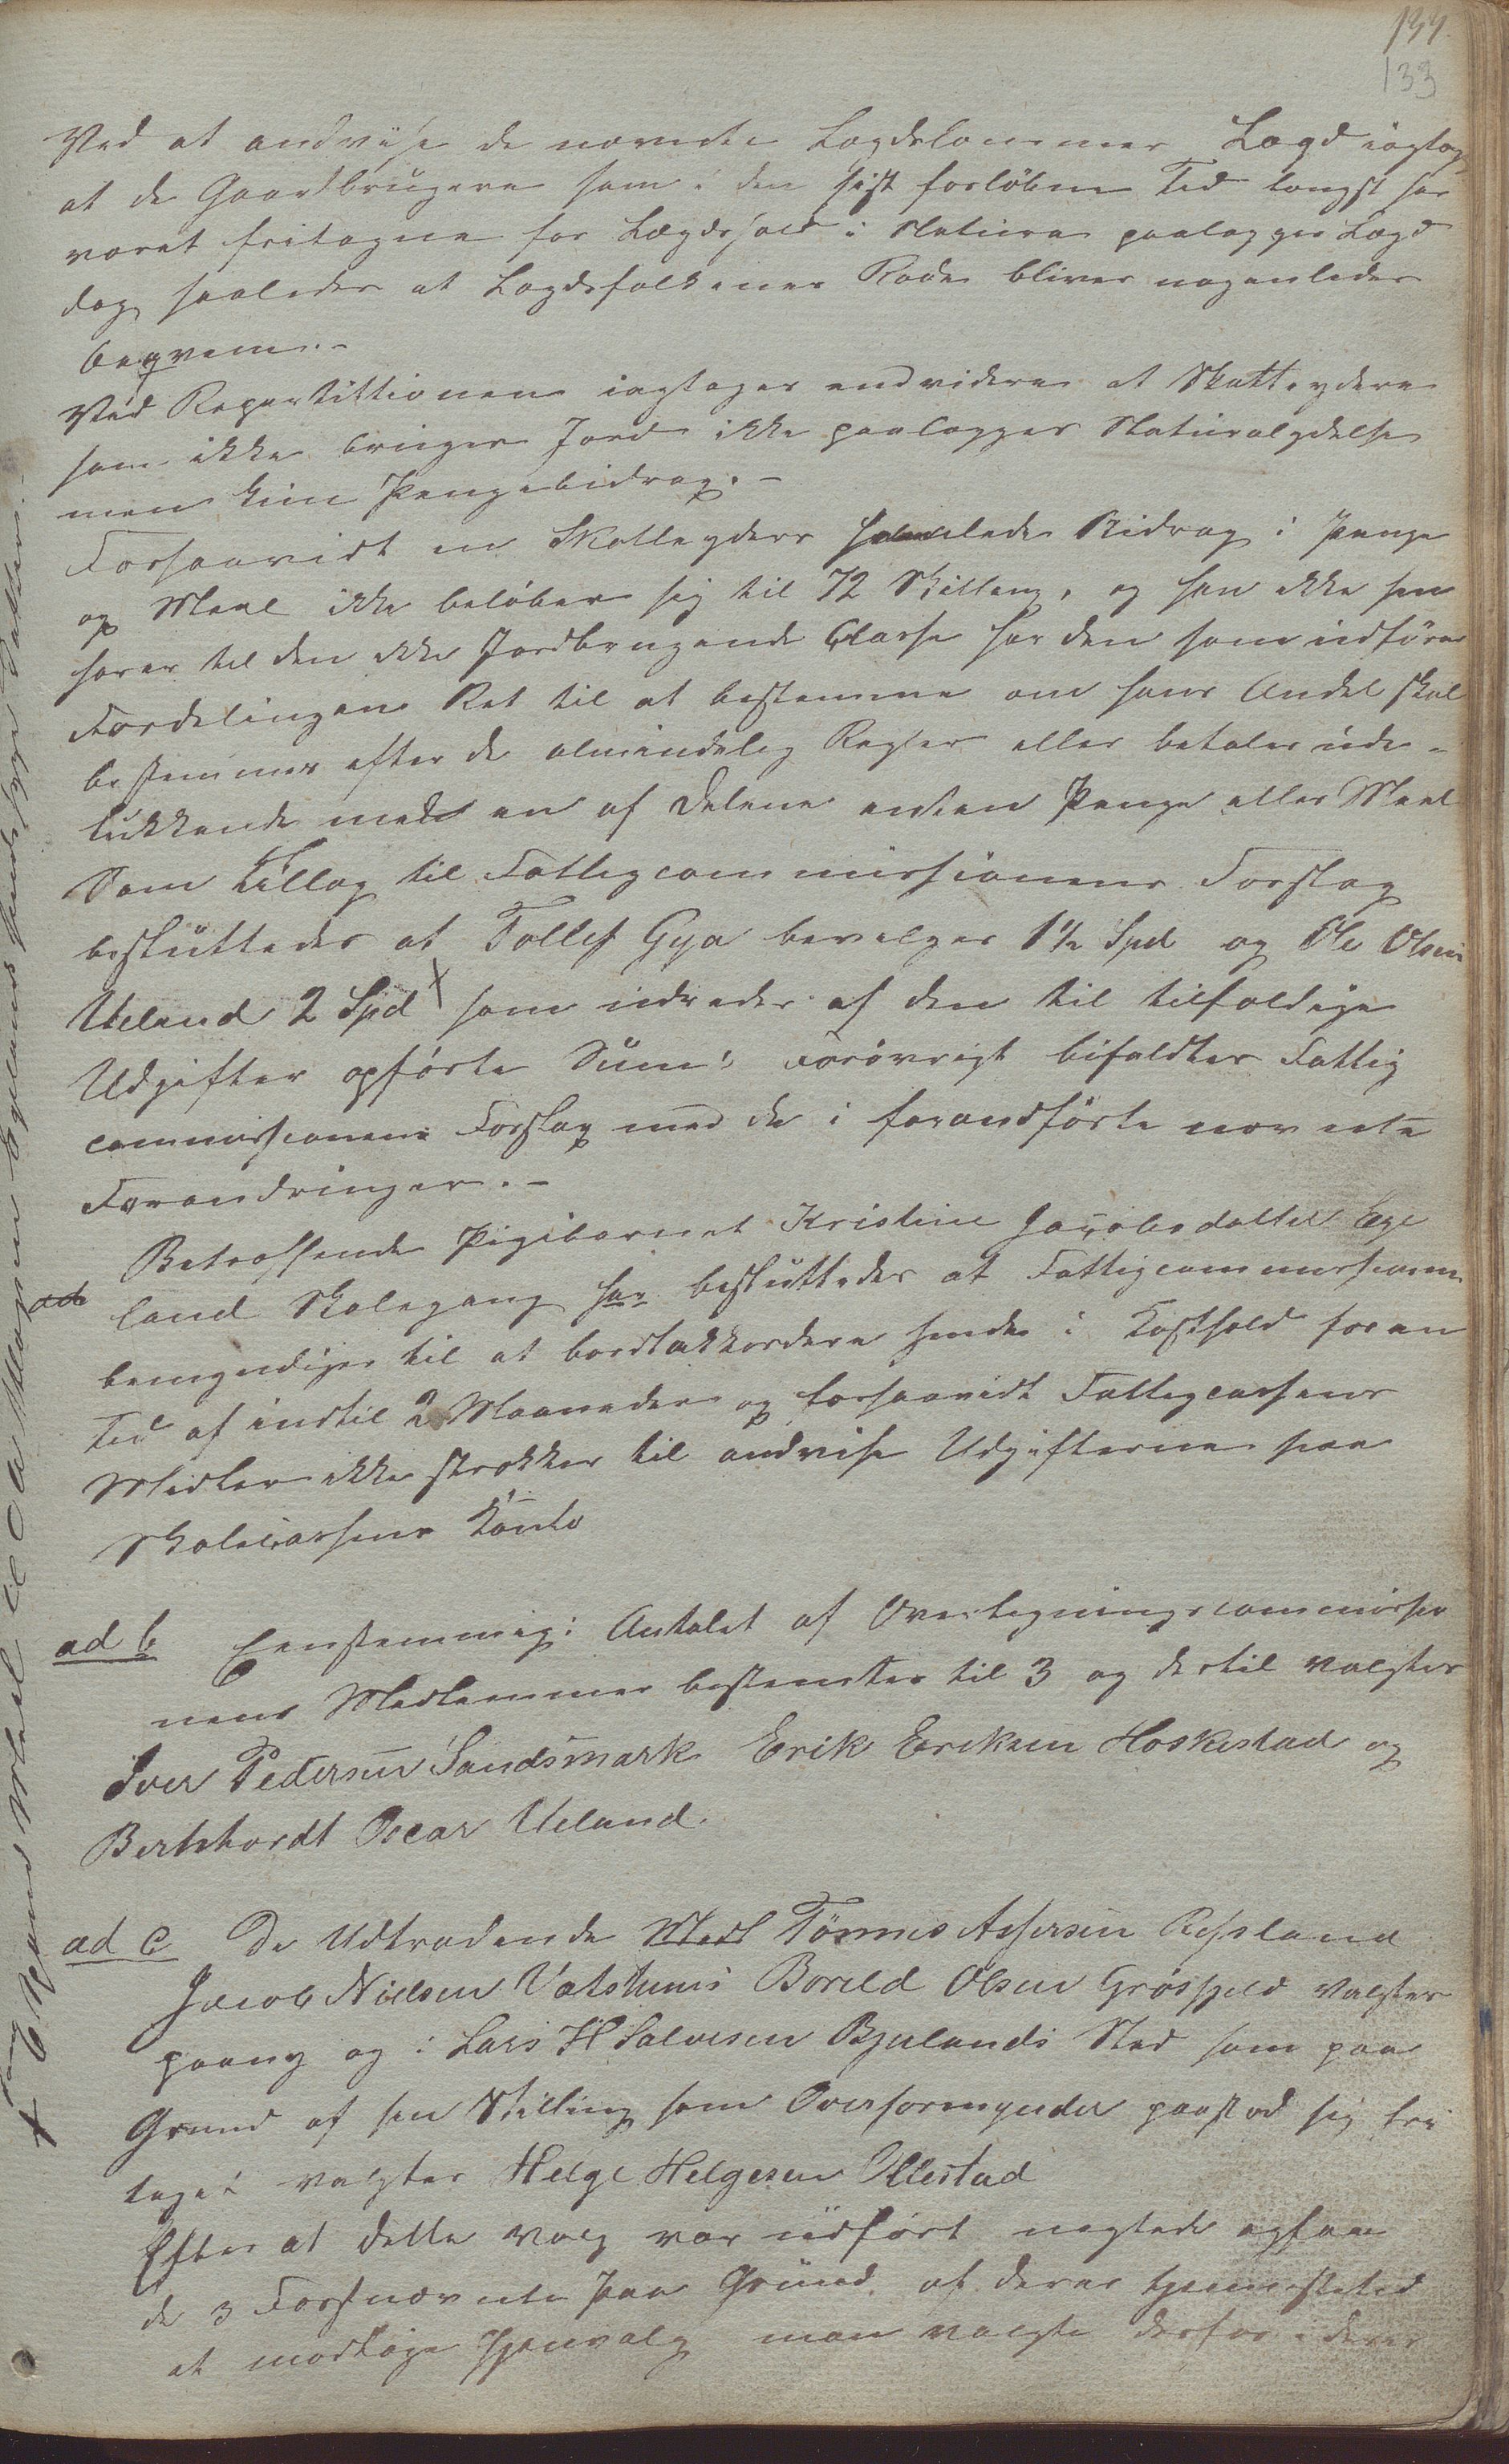 133
Ved at andvise de nævnte Lægdslemmer Lægd iagtag
at de Gaardbrugere som i den sist forløbne Tid længst har
været fritagne for Lægdshold i Natura paalægges Lægd
dog saaledes at Lægdsfolkenes Rode bliver nogenledes
beqvem.-
Ved Repartitionen iagtages endvidere at Skatteydere
som ikke bruger Jord ikke paalægges Naturalydelse
men kun Pengebidrag.-
Forsaavidt en Skatteyders samlede Bidrag i Penge
og Meel ikke beløber sig til 72 Skilling, og han ikke hen
hører til den ikke Jordbrugende Classe har den som udfører
Fordelingen Ret til at bestemme om hans Andel skal
bestemmes efter de almindelig Regler eller betales ude-
lukkende med en af Delene enten Penge eller Meel
Som Tillæg til Fattigcommissionens Forslag
besluttedes at Tollef Gya bevilges 1½ Spd og Ole Olsen
Ueland 2 Spd x som udredes af den til tilfældige
Udgifter opførte Sum: Forøvrigt bifaldtes Fattig
commissionens Forslag med de i foranførte nævnte
Forandringer.-
Betræffende Pigebarnet Kristine Jacobsdatter Ege
land Skolegang har besluttedes at Fattigcommissionen
bemyndiges til at bortakkordere hende i Kosthold for en
Tid af indtil 2 Maaneder og forsaavidt Fattigcassens
Midler ikke strækker til andvise Udgifterne paa
Skolecassens Konto
ad b Eenstemmig: Antalet af Overligningscommissio
nens Medlemmer bestemtes til 3 og dertil valgtes
Iver Pedersen Sandsmark Erik Eriksen Hoskestad og
Berthhardt Oscar Ueland.
ad c De Udtrædende Medl Tønnes Assersen Refsland
Jacob Nielsen Vatshuus Boreld Olsen Grøsfjeld valgtes
paany og i Lars H Salvesen Bjulands Sted som paa
Grund af sin Stilling som Overformynder paastod sig fri
taget valgtes Helge Helgesen Ollestad
Efter at dette valg var udført nægtede ogsaa
de 3 Førstnævnte paa Grund af deres tjenestetid
at modtage Gjenvalg man valgte derfor i deres